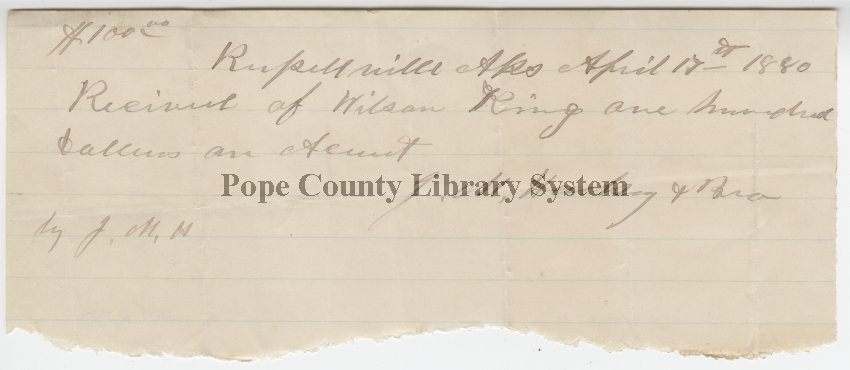 $100.00
Russellville Aks April 17th 1880
Recived of Wilson King one hundred
dollers on Acunt
Pope County Library System
J. M. & Bro
by J. M. H